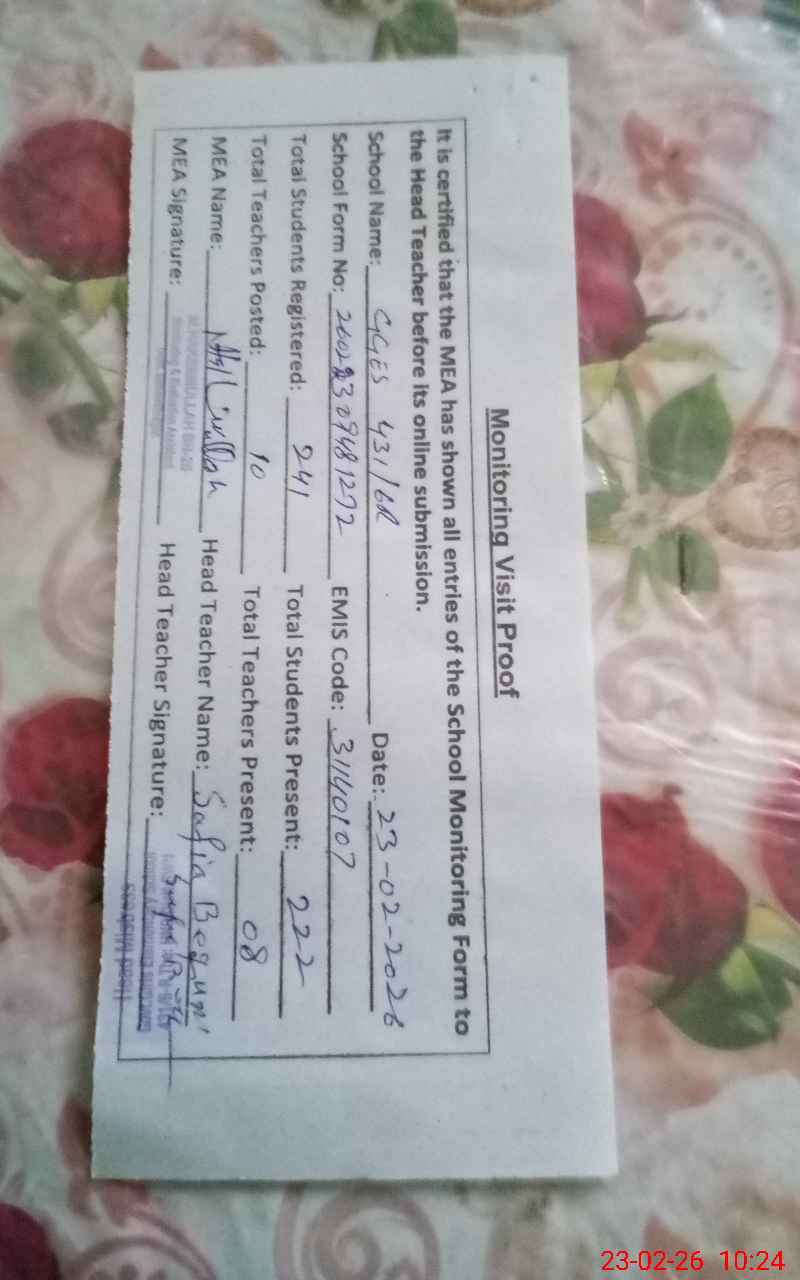 Monitoring Visit Proof
It is certified that the MEA has shown all entries of the School Monitoring Form to
the Head Teacher before its online submission.
School Name: GGES 431/6R Date: 23-02-2026
School Form No: EMIS Code: 31140107
Total Students Registered: 241 Total Students Present: 222
Total Teachers Posted: 10 Total Teachers Present: 08
MEA Name: Head Teacher Name: Safia Begum
MEA Signature: Head Teacher Signature:
23-02-26 10:24